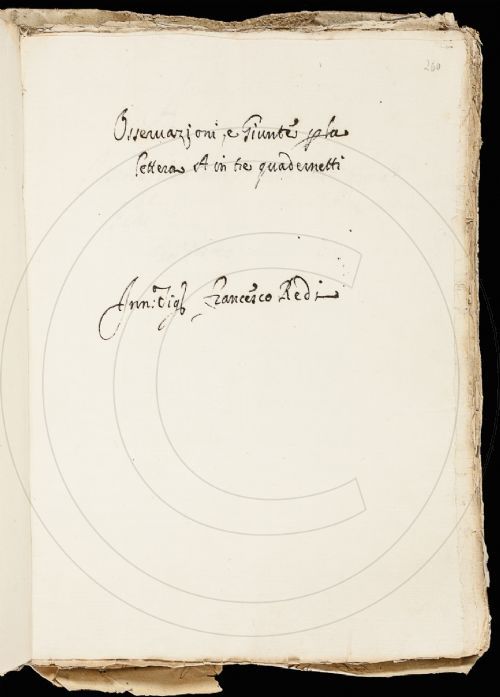 260
Osseruazioni, e Giunte p la
lettera A in tre quadernetti
Francesco Redi